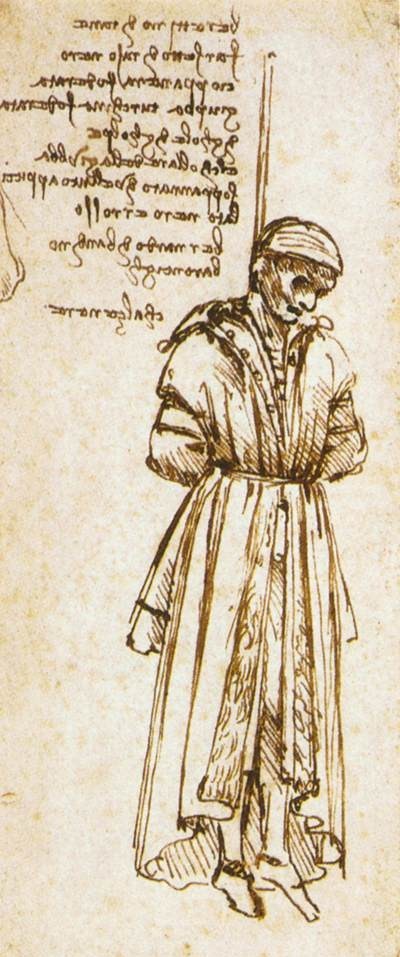 berettino di tanè
farsetto di raso nero
cioppa nera foderata
giuppa turchina foderata
di ghole di gholpe
el chollare della giubba
soppannato di velluto appicci
lato nero e rosso
bernardo di bandino
baroncigli
chalze nere